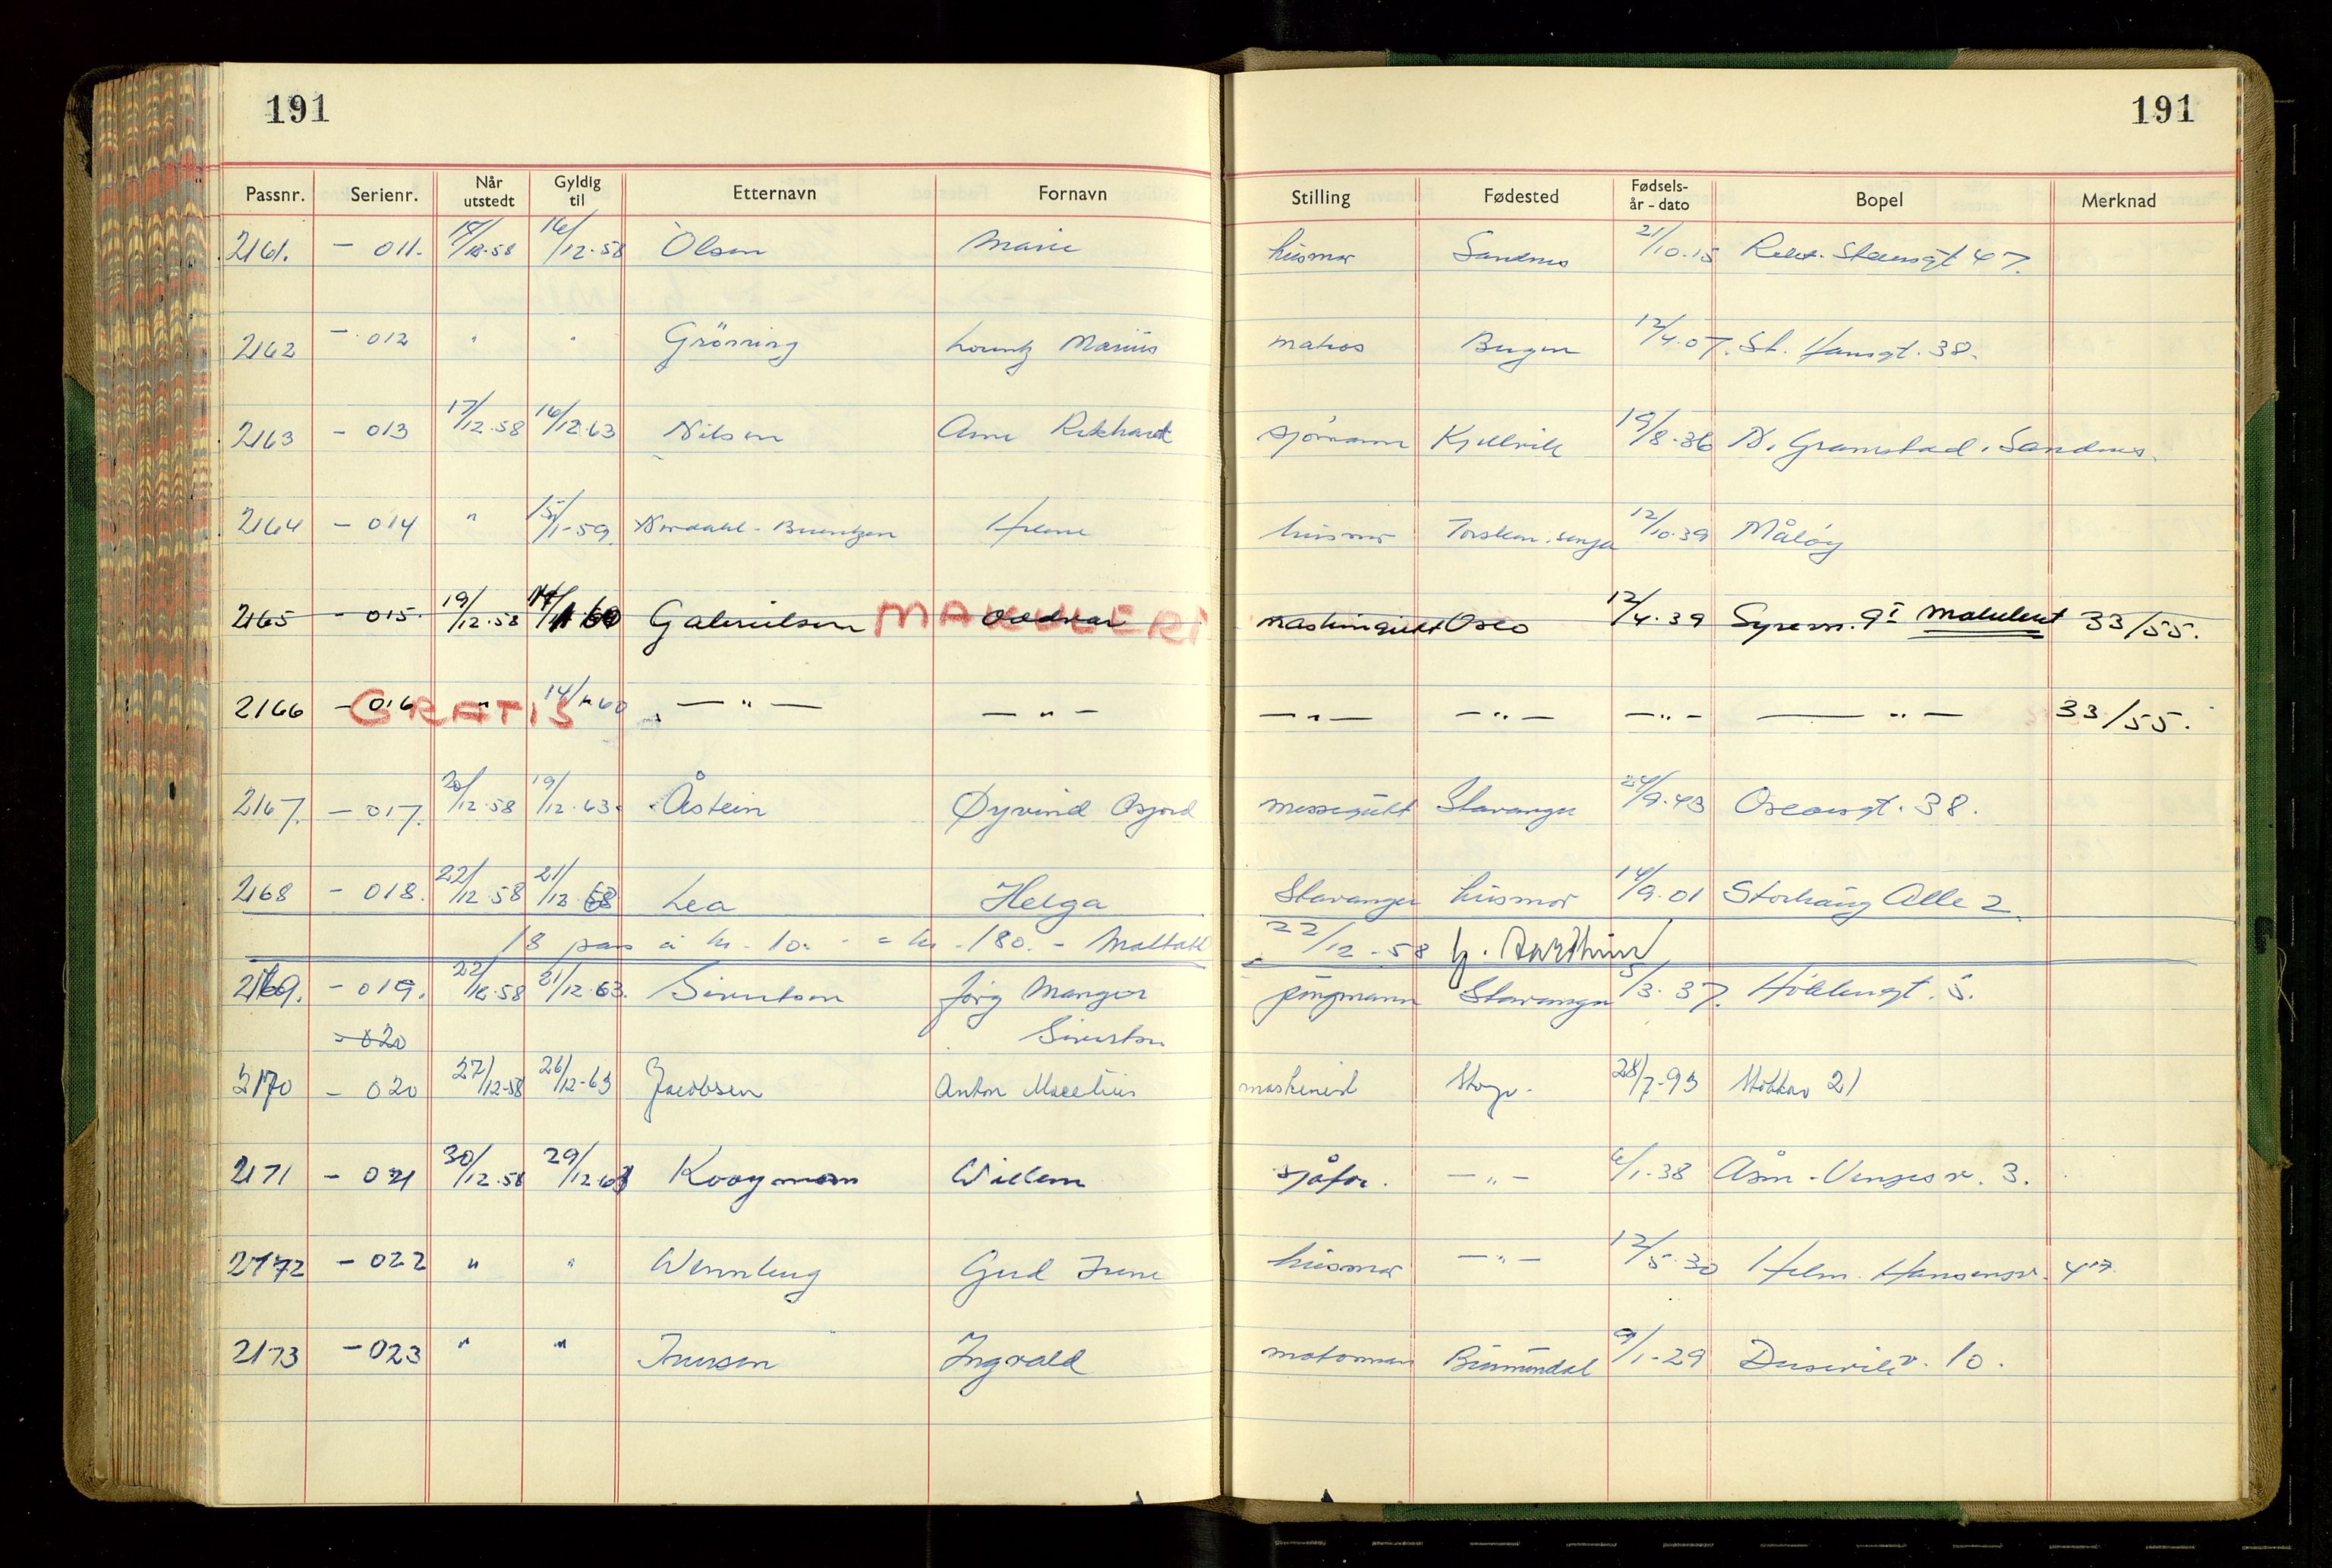 191
191
Passnr. Serienr. Når utstedt Gyldig til Etternavn Fornavn Stilling Fødested Fødsels-år - dato Bopel Merknad
2161. - 011. 17/12.58 16/12.58 Olsen Marie husmor Sandnes 21/10.15 47.
2162 - 012 " " Grönning Lorentz Marius matros Bergen 12/4.07. St. Hansgt. 38.
2163 - 013 17/12.58 16/12.63 Nilsen Arne Rikhard sjömann Kjellvik 19/8.36 N. Gramstad, Sandnes.
2164 - 014 " 15/1-59. Nordahl - Berentzen Helene husmor Torsken, Senja 12/10.39 Måløy
2165 - 015. 19/12.58 14/1.60 Gabrielsen Oddvar MAKULERT maskingutt Oslo 12/4.39 Syrenv. 9 I Makulert 33/55.
2166 - 016 GRATIS " 14/1.60 — " — — " — — " — — " — — " — — " — 33/55.
2167. - 017. 20/12.58 19/12.63. Åstein Øyvind Asjord messegutt Stavanger 24/9.43 Osloesgt. 38.
2168 - 018. 22/12.58 21/12.63 Lea Helga Stavanger husmor 14/9.01 Storhaug Alle 2.
18 pass à kr. 10.- = kr. 180.- Mottatt 22/12-58
2169. - 019. 22/12.58 21/12.63. Sivertsen Jörg Manger jungmann Stavanger 5/3.37. 5.
- 020 Sivertsen
2170 - 020 27/12-58 26/12-63 Jacobsen Anton Maeelius maskinist Stvgr. 28/7-93 21
2171 - 021 30/12.58 29/12.63 Kooyman Willem sjåfør. — " — 6/1.38 Åsm. Vinjesv. 3.
2172 - 022 " " Wennberg Gerd Irene husmor — " — 12/5.30 Helm. Hansensv. 4
2173 - 023 " " Iversen Ingvald motormann 9/1-29 Dusavikv. 10.